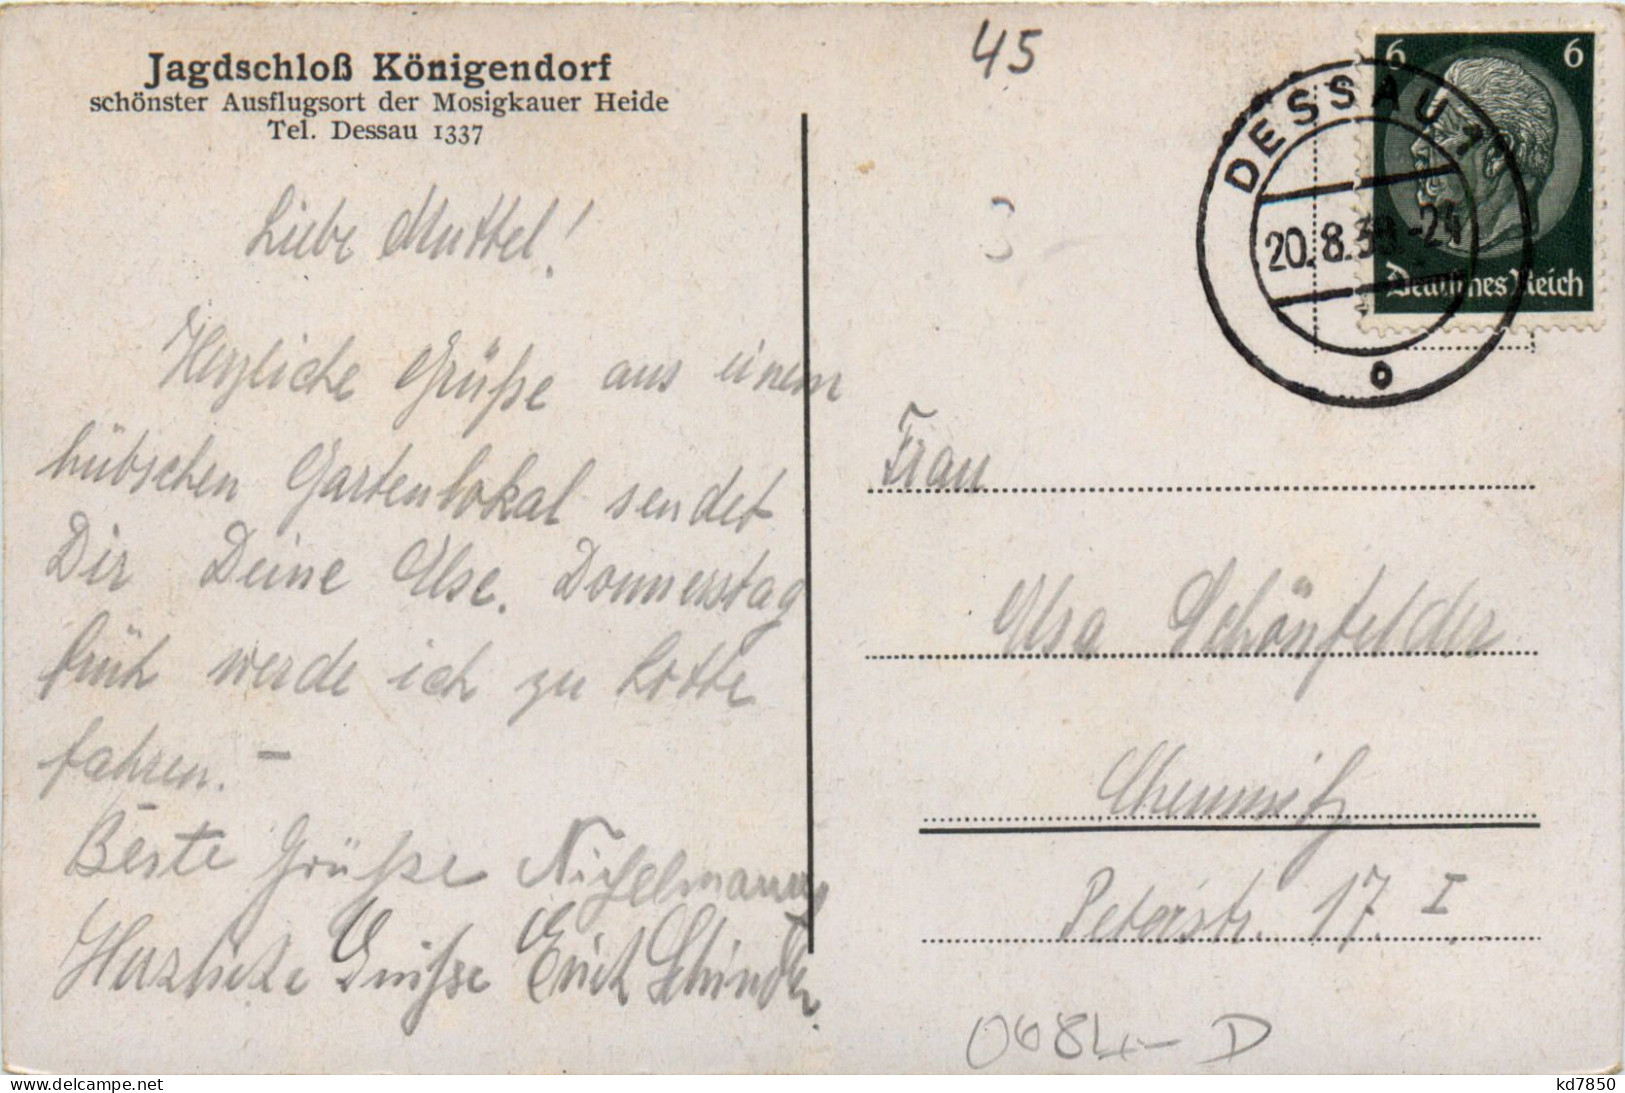 Jagdschloß Königendorf
schönster Ausflugsort der Mosigkauer Heide
Tel. Dessau 1337
Liebe Muttel!
Herzliche Grüße aus einem
hübschen Gartenlokal sendet
Dir Deine Else. Donnerstag
früh werde ich zu Lotte
fahren. –
Beste Grüße
Herzliche Grüße Erich Schindler.
45
3 –
6 6
Deutsches Reich
DESSAU 1
20.8.38.-24
o
Frau
Elsa Schönfelder
Chemnitz
Peterstr. 17. I.
0684 – D
www.delcampe.net
kd7850